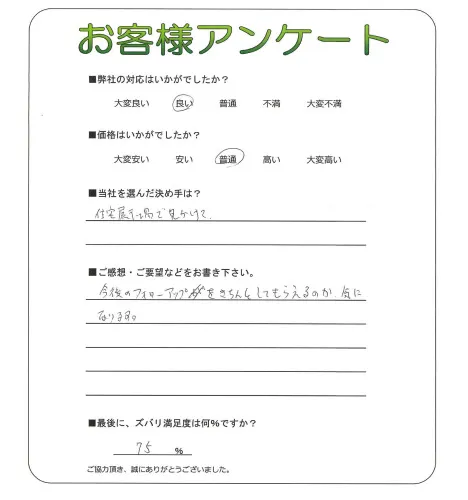 お客様アンケート
■弊社の対応はいかがでしたか？
大変良い 良い 普通 不満 大変不満
■価格はいかがでしたか？
大変安い 安い 普通 高い 大変高い
■当社を選んだ決め手は？
住宅展示場で見かけて、
■ご感想・ご要望などをお書き下さい。
今後のフォローアップをきちんとしてもらえるのか、気に
なります。
■最後に、ズバリ満足度は何%ですか？
75 %
ご協力頂き、誠にありがとうございました。